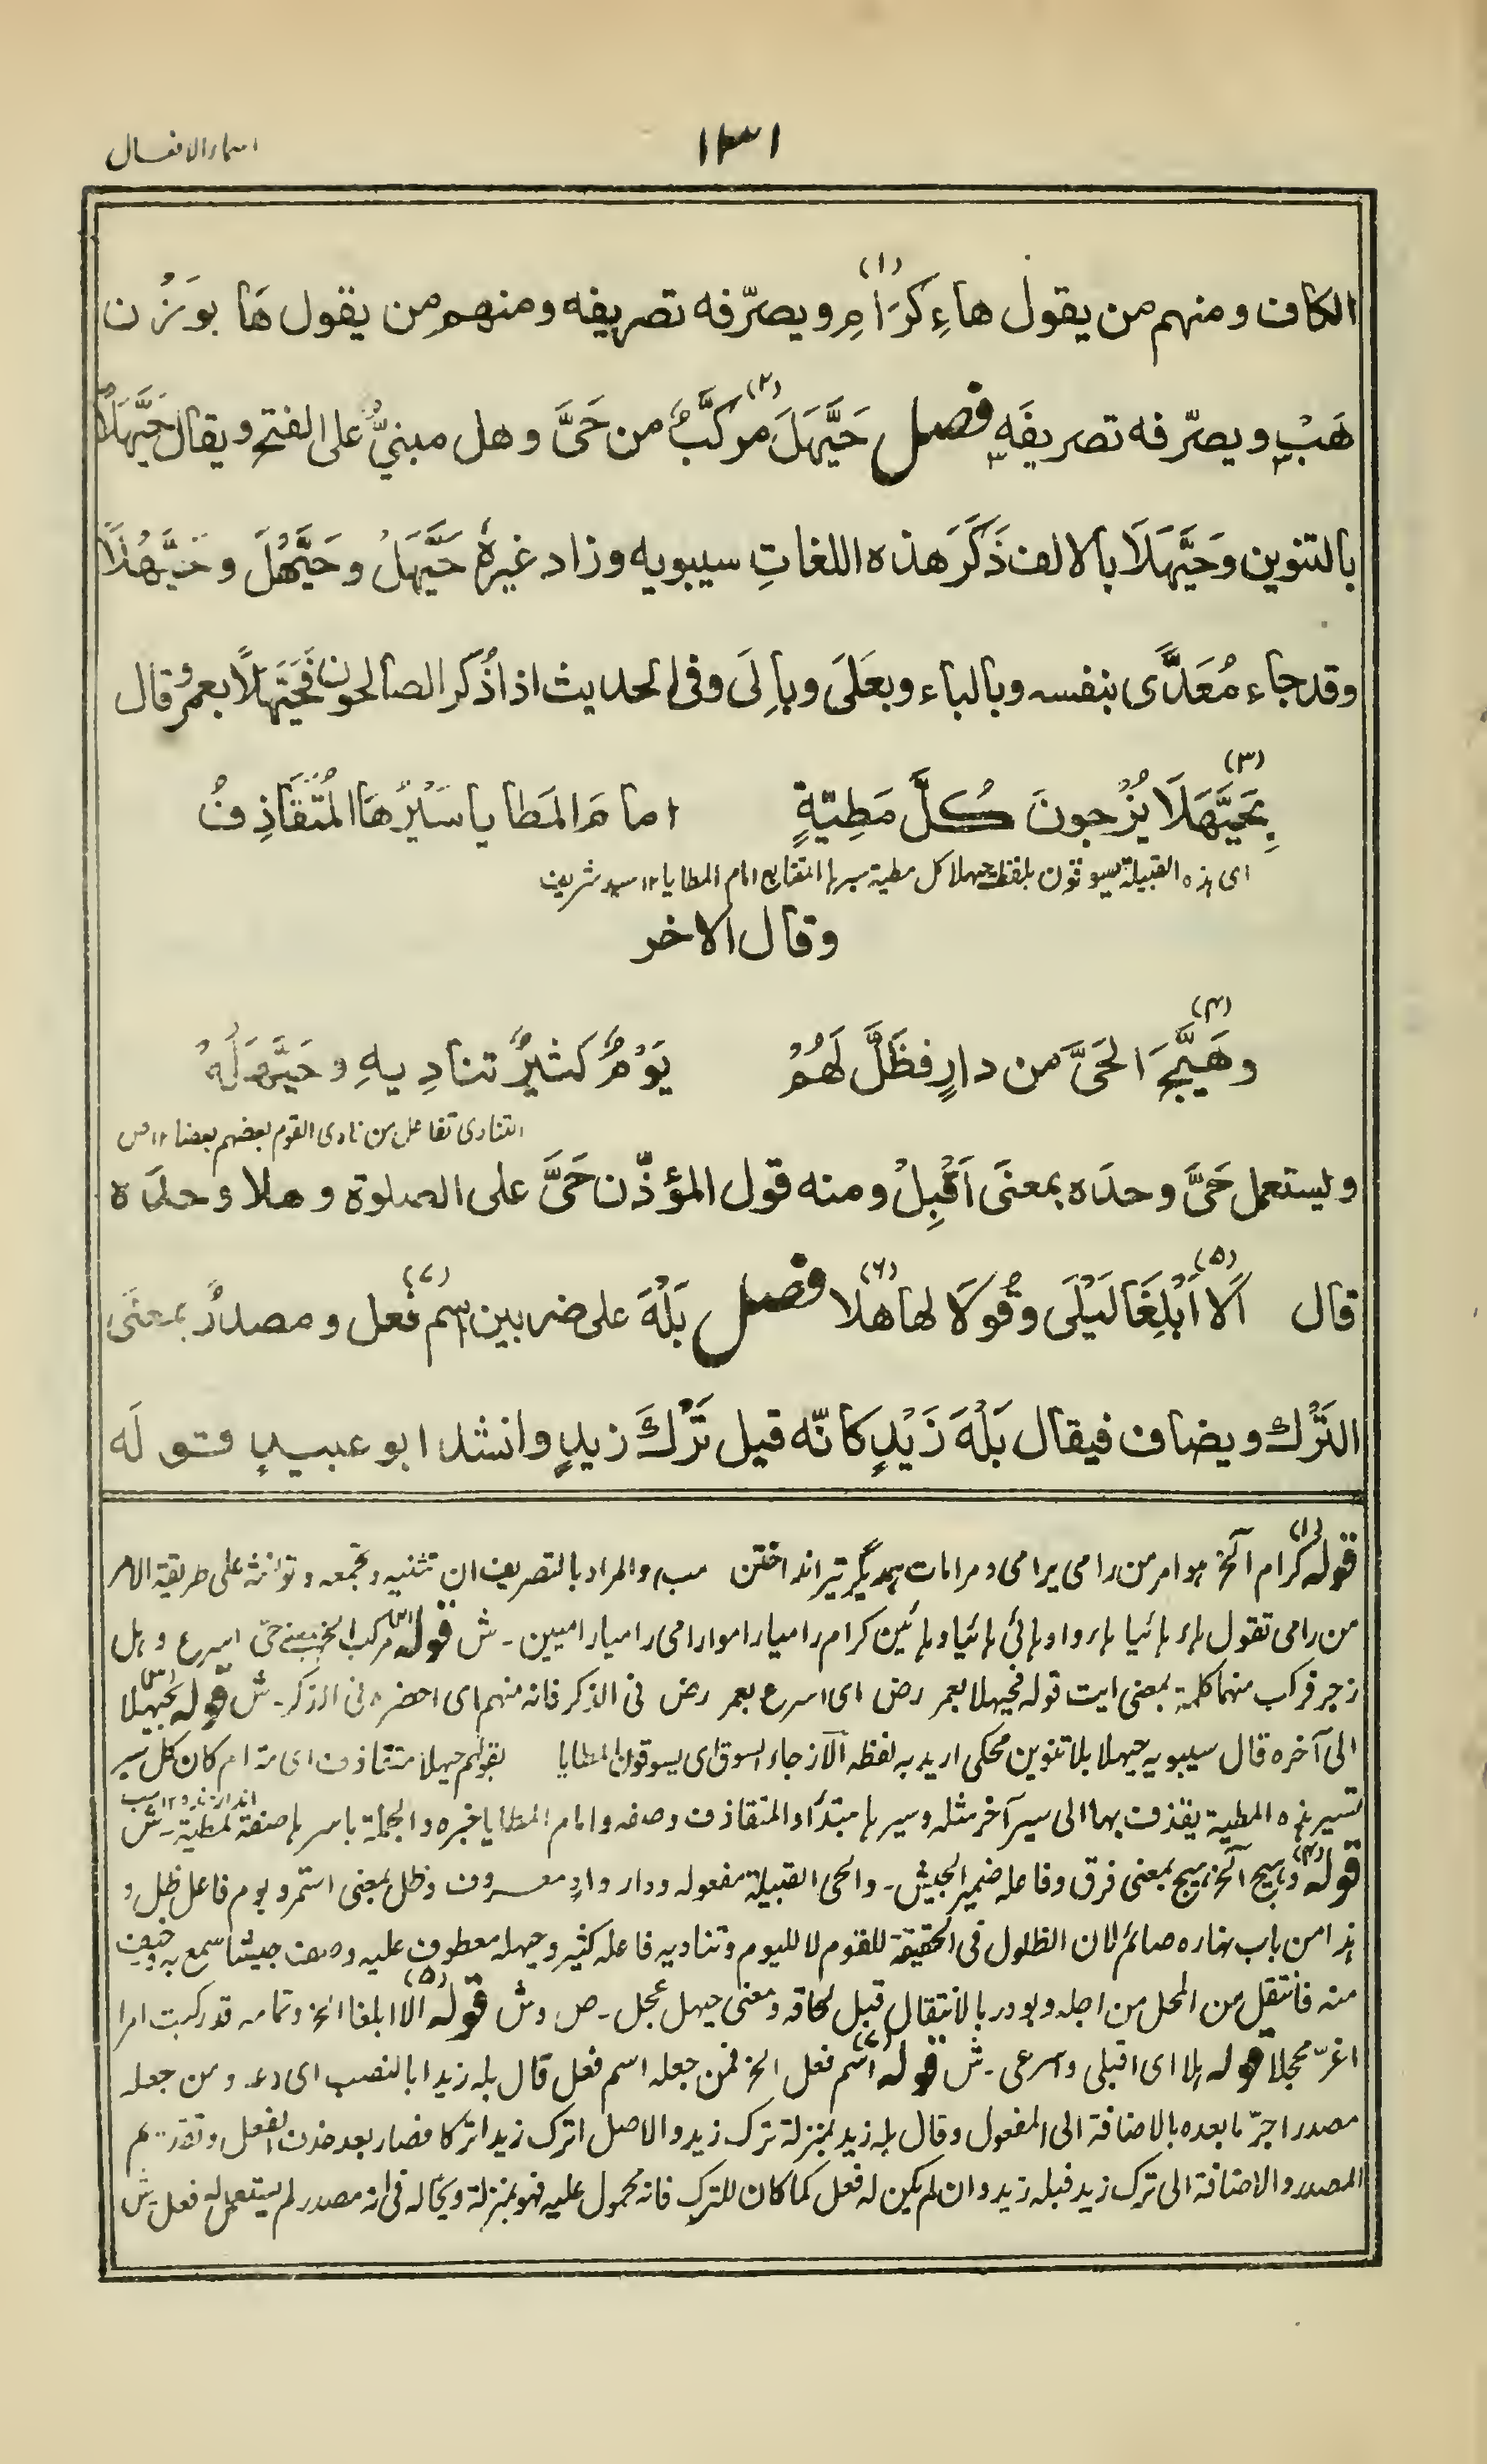 اسماء الافعال
١٣١
الكاف ومنهم من يقول هاءِ كَرَامِ ويصرّفه تصريفه ومنهم من يقول هَا بوَزْن
هَبْ ويصرّفه تصريفَه فصل حَيَّهَلَ مركَّبٌ من حَىَّ وهل مبنيٌّ على الفتح ويقال حَيَّهَلًا
بالتنوين وحَيَّهَلَا بالالف ذَكَرَ هذه اللغاتِ سيبويه وزاد غيرهُ حَيَّهَلْ وحَيَّهْلَ وحَيَّهْلًا
وقد جاء مُعَدًّى بنفسه وبالباء وبعَلىَ وبإلَى وفى الحديث اذا ذُكر الصالحون فَحَيَّهَلًا بعمرُ قال
(٣)
بِحَيَّهَلَا يُزْجونَ كُلَّ مَطِيّةٍ امامَ المَطايا سَيْرُهَا المُتَقَاذِفُ
اى هذه القبيلة يسوقون بلفظ حيهلا كل مطية سيرها المتتابع امام المطايا ١٢ سيد شريف
وقال الاخر
(٤)
وهَيَّجَ الحَىَّ من دارٍ فظَلَّ لَهُمْ يَوْمٌ كثيرٌ تنادِيهِ وحَيَّهَلُهْ
التنادى تفاعل من نادى القوم بعضهم بعضا ١٢ ص
ويستعمل حَىَّ وحدَه بمعنَى اَقْبِلْ ومنه قول المؤذّن حَىَّ على الصلوة وهلا وحدَه
قال اَلَا اَبْلِغَا لَيْلَى وقُولَا لها هلا فصل بَلْهَ على ضربين اسم فعل ومصدرٌ بمعنَى
التَرْك ويضاف فيقال بَلْهَ زَيْدٍ كانّه قيل تَرْكَ زيدٍ وانشد ابو عبيدٍ قوله
قوله كرام آلخ هو امر من رامى يرامى ومرامات بهمديگر تير انداختن والمراد بالتصريف ان تثنيه وتجمعه وتؤنثه على طريقة الامر
من رامى تقول هاء هائيا هاءوا وهائى هائيا وهائين كرام راميا راموا رامى راميا رامين ۔ ش قوله مركب الخ فمعنى حى اسرع وهل
زجر فركب منهما كلمة بمعنى ايت قوله فحيهلا بعمر رض اى اسرع بعمر رض فى الذكر فانه منهم اى احضره فى الذكر ۔ ش قوله بحيهلا
الى آخره قال سيبويه حيهلا بلا تنوين محكى اريد به لفظه الازجاء السوق اى يسوقون المطايا بقولهم حيهلا متقاذف اى مترام كان كل سير
تسير هذه المطية يقذف بها الى سير آخر مثله وسيرها مبتدأ والمتقاذف وصفه وامام المطايا خبره والجملة باسرها صفة لمطية ۔ ش
قوله وهيج آلخ هيج بمعنى فرق وفاعله ضمير الجيش ۔ والحى القبيلة مفعوله ودار وادٍ معروف وظل بمعنى استمر ويوم فاعل ظل و
هذا من باب نهاره صائم لان الظلول فى الحقيقة للقوم لا لليوم وتناديه فاعله كثير وحيهله معطوف عليه وصف جيشا سمع به وخيف
منه فانتقل من المحل من اجله وبودر بالانتقال قبل لحاقه ومعنى حيهل عجل ۔ ص وش قوله الا ابلغا الخ وتمامه قد ركبت امرا
اغرّ محجلا قوله هلا اى اقبلى واسرعى ۔ ش قوله اسم فعل الخ فمن جعله اسم فعل قال بله زيدا بالنصب اى دع ومن جعله
مصدرا جرّ ما بعده بالاضافة الى المفعول وقال بله زيد بمنزلة ترك زيد والاصل اترك زيدا تركا فصار بعد حذف الفعل وتقديم
المصدر والاضافة الى ترك زيد فبله زيد وان لم يكن له فعل كما كان للترك فانه محمول عليه فهو بمنزلة ويحا له فى انه مصدر لم يستعمل له فعل ۔ ش